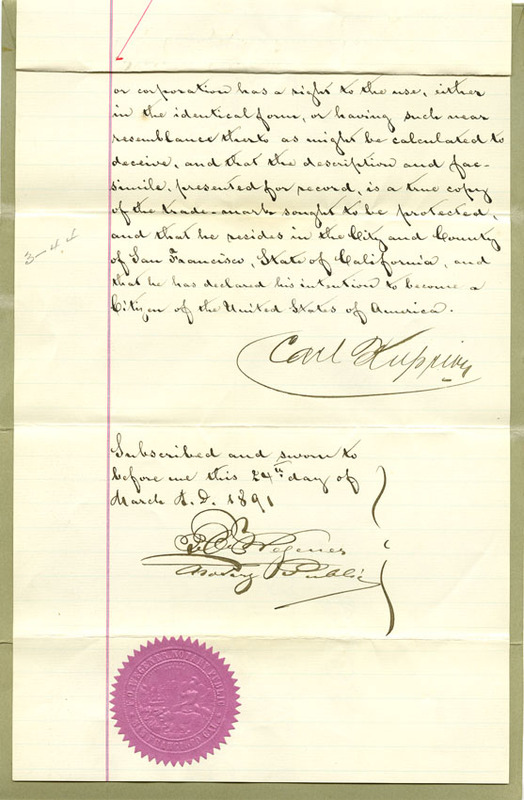 or corporation has a right to the use, either
in the identical form, or having such near
resemblance therto as might be calculated to
deceive, and that the description and fac-
simile, presented for record, is a true copy
of the trade-mark sought to be protected,
and that he resides in the City and County
of San Francisco, State of California, and
that he has declared his intention to become a
Citizen of the United States of America.
Carl
Subscribed and sworn to
before me this 24th day of
March A.D. 1891
Notary Public
NOTARY PUBLIC